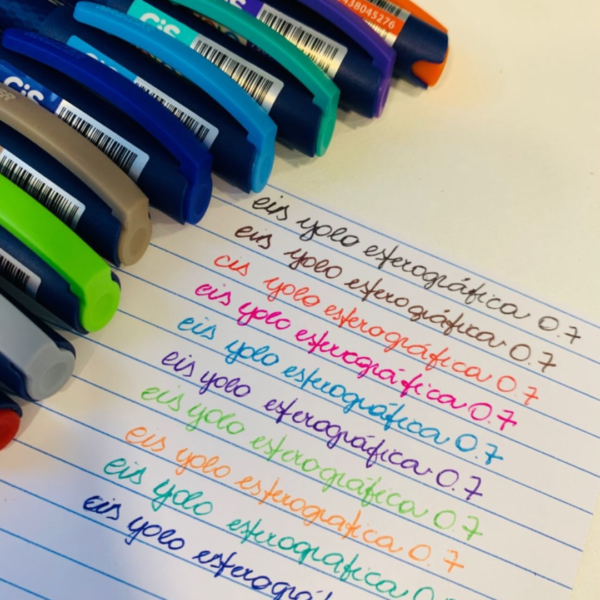 438045276
CiS
CiS
cis yolo esferográfica 0.7
cis yolo esferográfica 0.7
cis yolo esferográfica 0.7
cis yolo esferográfica 0.7
cis yolo esferográfica 0.7
cis yolo esferográfica 0.7
cis yolo esferográfica 0.7
cis yolo esferográfica 0.7
cis yolo esferografica 0.
cis yolo esferográf